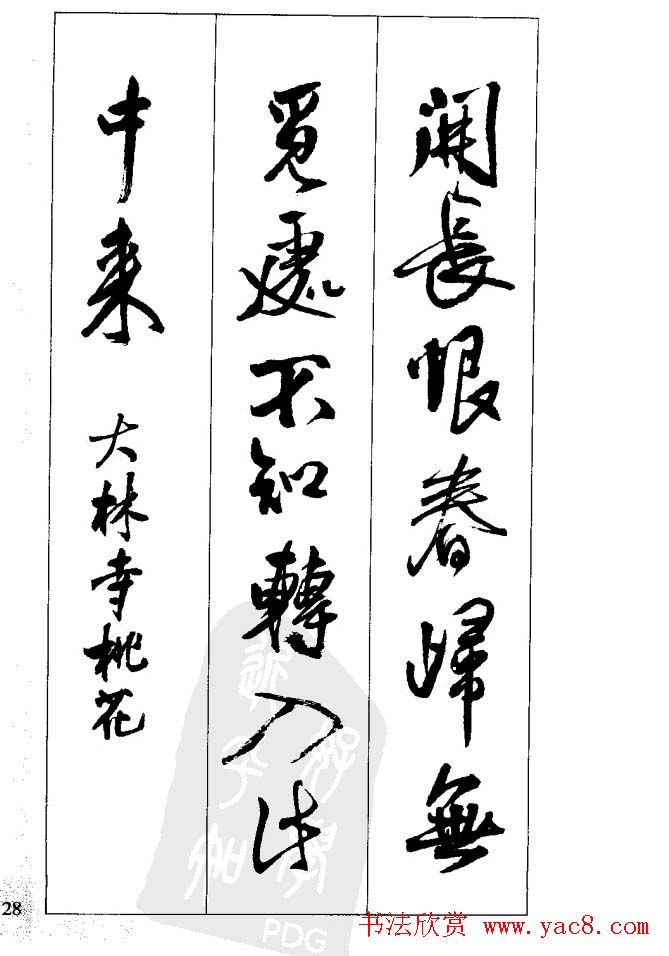 開長恨春歸無
覓處不知轉入此
中來
大林寺桃花
28
PDG
书法欣赏 www.yac8.com